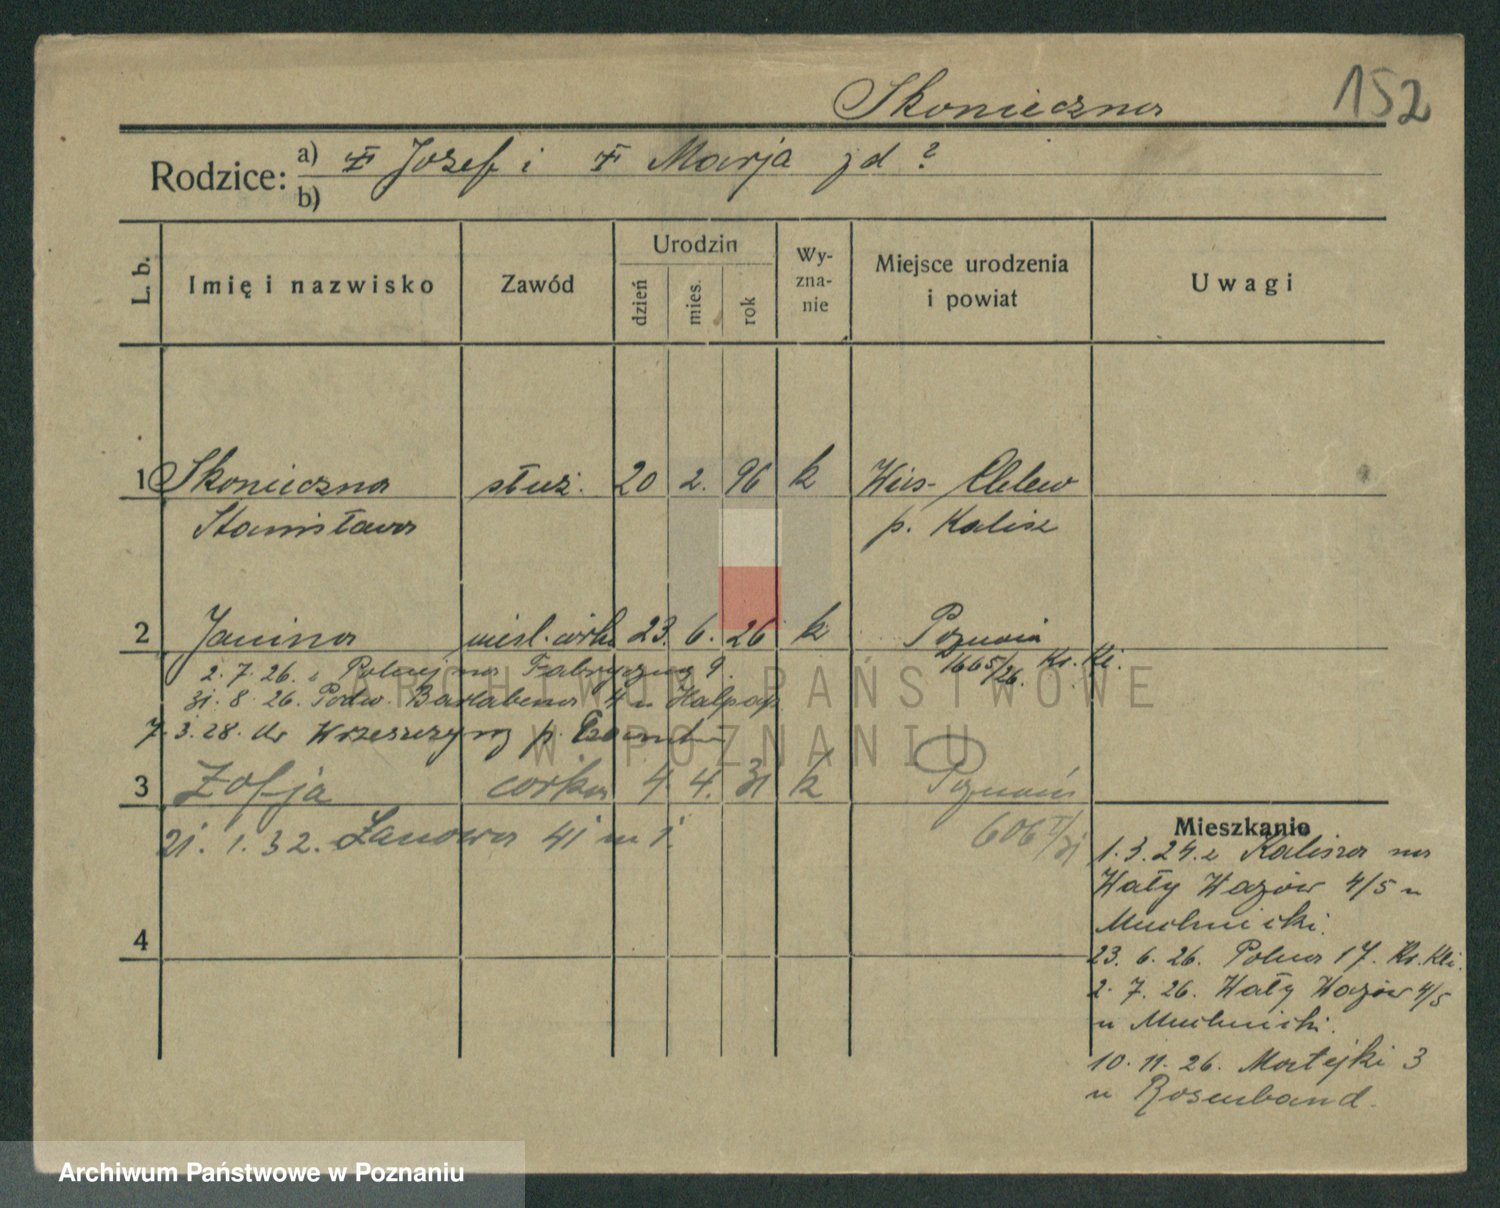 Skonieczna
152
Rodzice: a) Józef i Marja z d ?
b)
L. b.
Imię i nazwisko
Zawód
Urodzin
dzień
mies.
rok
Wy-
zna-
nie
Miejsce urodzenia
i powiat
Uwagi
1 Skonieczna służ. 20 2. 96 k Wieś-
Stanisława p. Kalisz
2 Janina córka 23. 6. 26 k Poznań
2. 7. 26. z Polnej na Fabryczną 9. 1665/26. Kr. Kl.
31. 8. 26. Podw. 4 u
7. 3. 28. do p.
3 Zofja córka 4 4. 31 k Poznań
21. 1. 32. Łanowa 41 m 1. 606 I/31
4
Mieszkanie
1. 3. 24. z Kalisza na
Wały Wazów 4/5 u
Muchnicki.
23. 6. 26. Polna 17. Kr. Kli.
2. 7. 26. Wały Wazów 4/5
u Muchnicki.
10. 11. 26. Matejki 3
u Rosenband.
ARCHIWUM PAŃSTWOWE
W POZNANIU
Archiwum Państwowe w Poznaniu